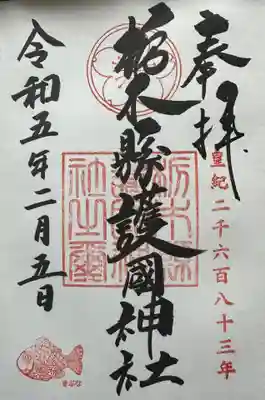 奉拝
皇紀二千六百八十三年
栃木縣護國神社
令和五年二月五日
栃木縣護國神社之璽
きぶな